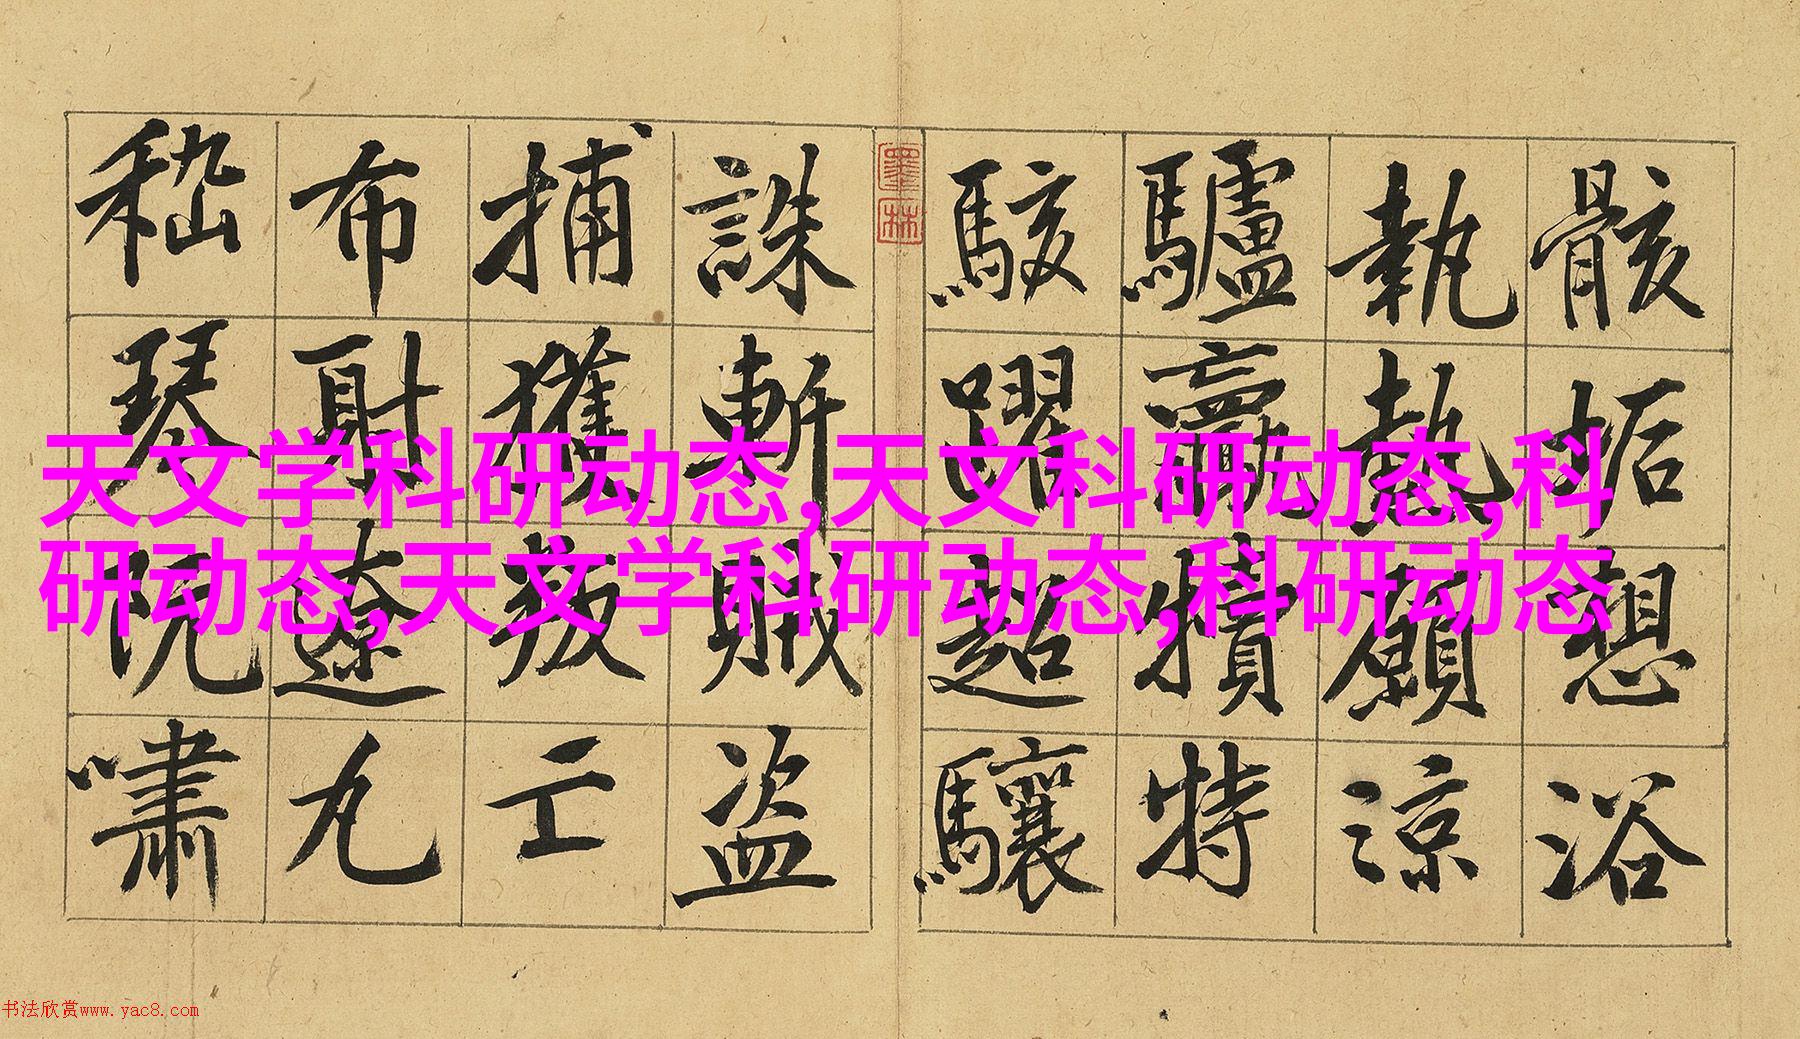 骸垢想浴
執熱願涼
驢驘犢特
駭躍超驤
墨林
誅斬賊盜
捕獲叛亡
布射遼丸
嵇琴阮嘯
天文学科研动态,天文科研动态,科
研动态,天文学科研动态,科研动态
书法欣赏www.yac8.com